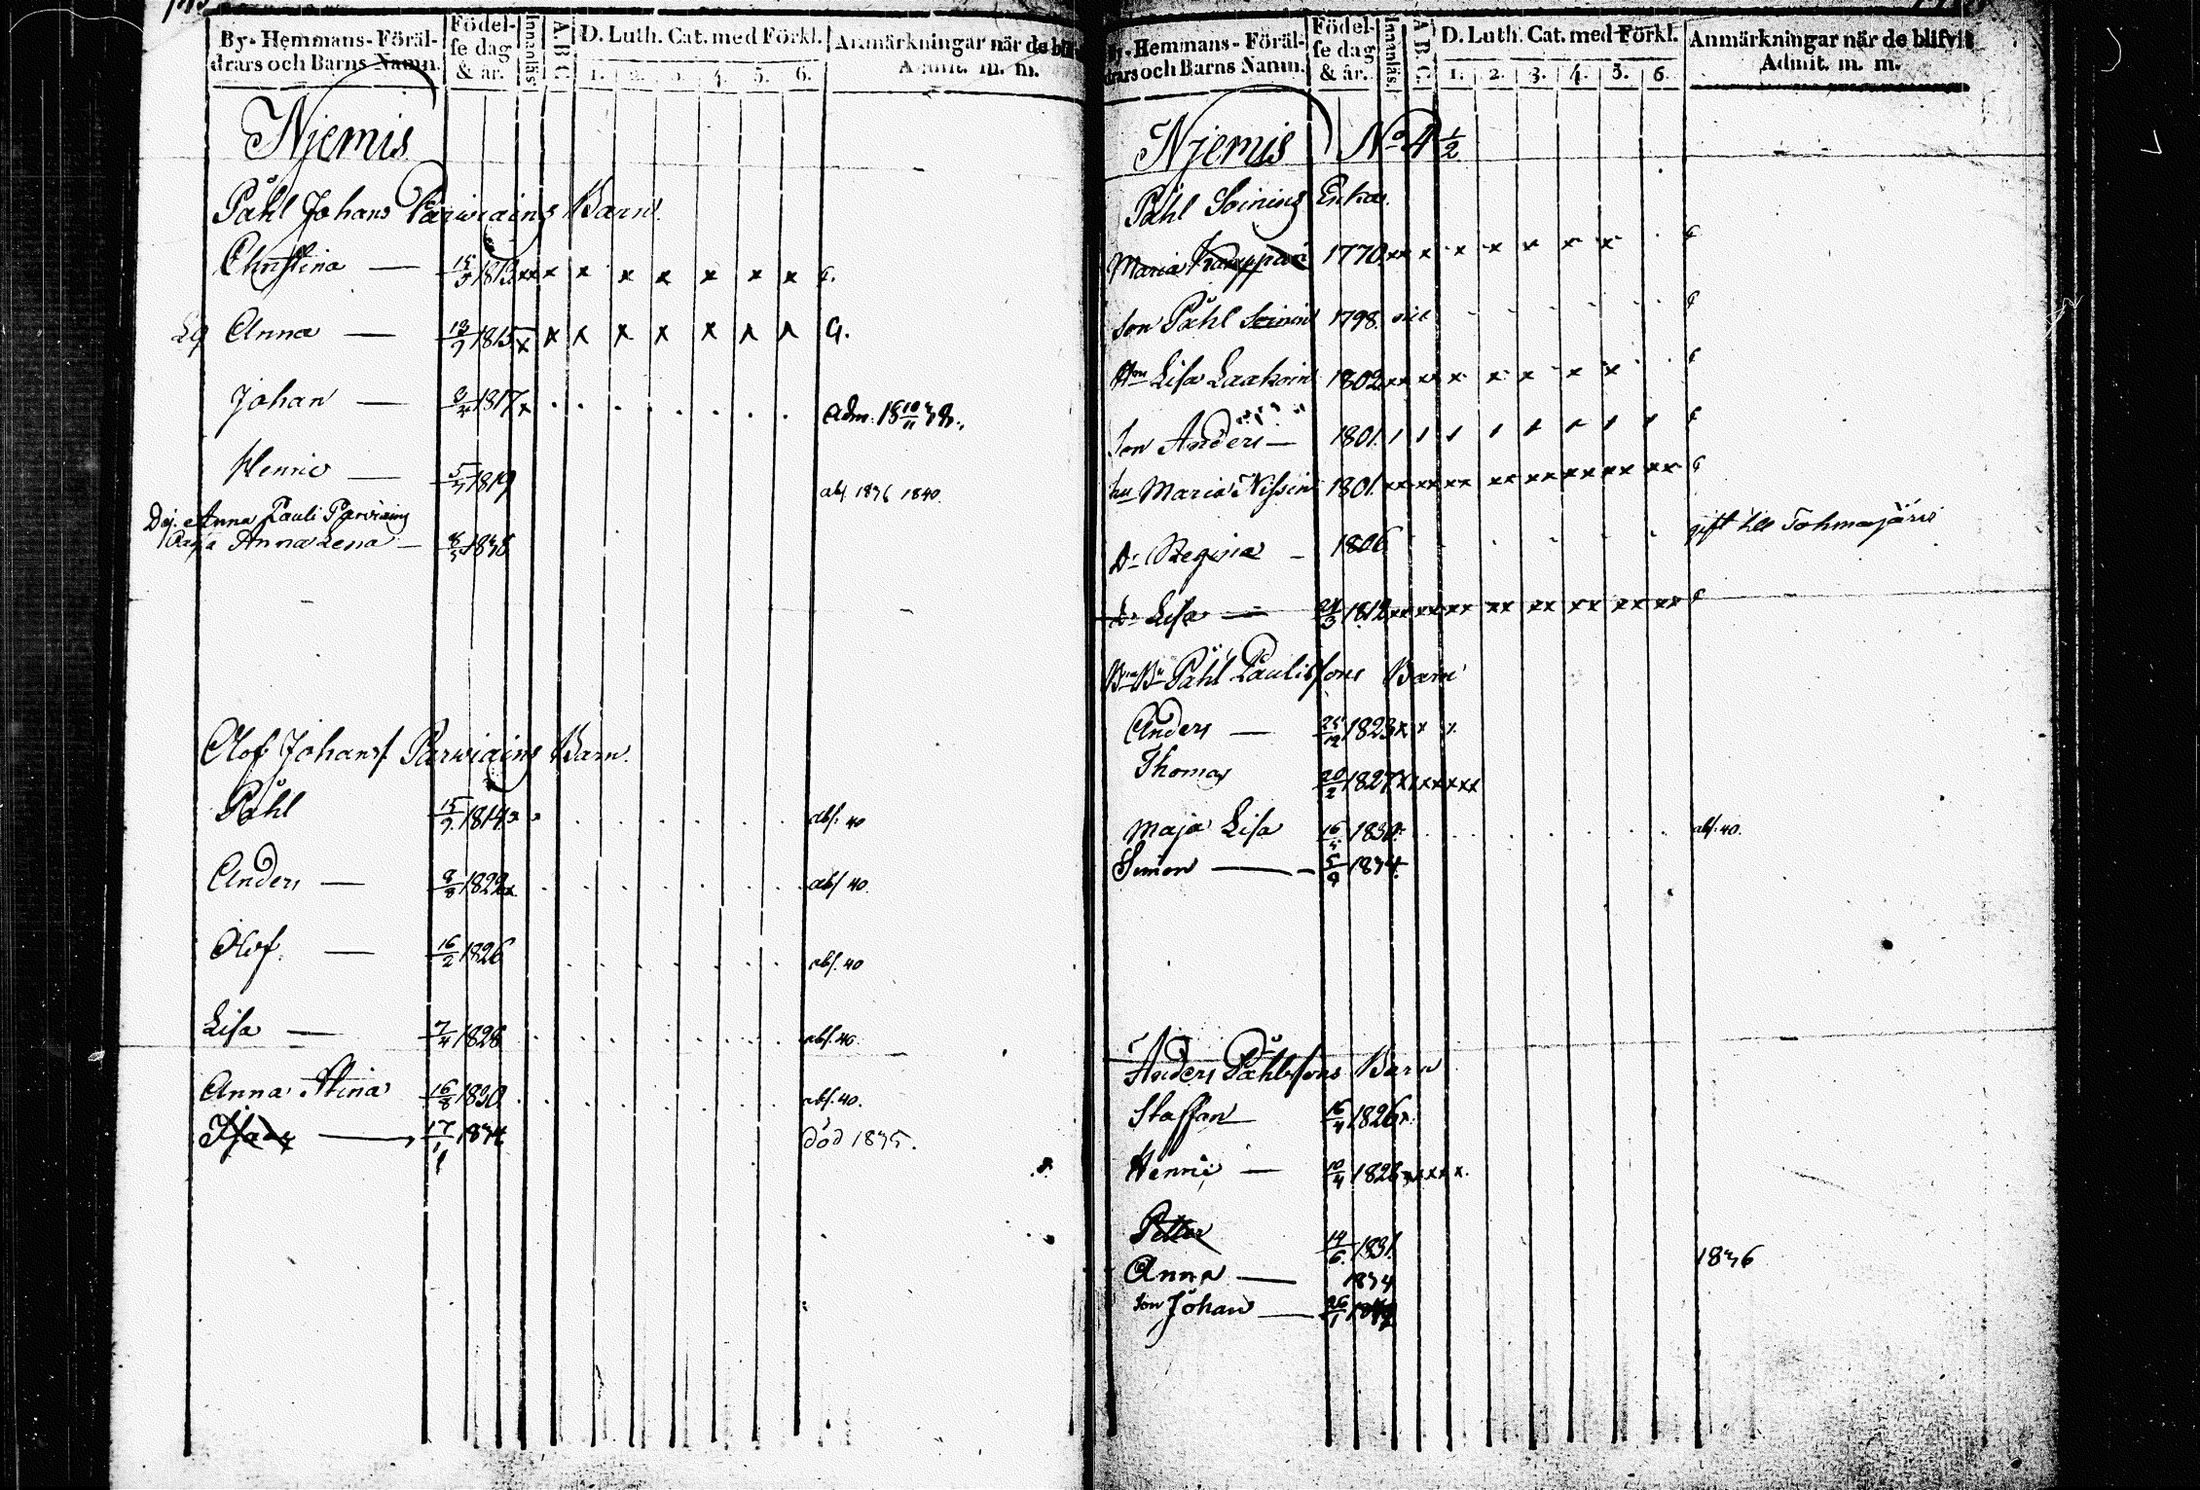 By- Hemmans- Föräl-
drars och Barns Namn.
Födel-
se dag
& år.
Innanläs.
A B C
D. Luth. Cat. med Förkl.
1. 2. 3. 4. 5. 6.
Anmärkningar när de blif
Admit. m. m.
Njemis
Påhl Johans Parwiains Barn
Christina — 15/3 1813 xx x x x x x x x
Anna — 1815 x x x x x x x x
Johan — 1817 x Adm:
Henric — 5/3 1819 abs. 1836 1840.
Anna Pauli Parviains
Anna Lena — 1838
Olof Johans Parwiains Barn.
Påhl 15/9 1814 abs: 40
Anders — 8/8 1822 abs 40.
Olof — 16/2 1826 abs. 40
Lisa — 7/4 1828 abs. 40
Anna Stina 16/8 1830 abs. 40.
Isaac — 17/1 1834 död 1835.
By- Hemmans- Föräl-
drars och Barns Namn.
Födel-
se dag
& år.
Innanläs.
A B C
D. Luth. Cat. med Förkl.
1. 2. 3. 4. 5. 6.
Anmärkningar när de blifvit
Admit. m. m.
Njemis No 4 1/2
Påhl Soinins Enka
Maria 1770 xx x x x x x x
Son Påhl Soinin 1798
Lisa Laakoin 1802 xx xx x x x x x
Son Anders — 1801
hu Maria Nissin 1801 xx xx xx xx xx xx xx xx
Dr Regina — 1806 gift till Tohmajärvi
Dr Lisa — 1812 xx xx xx xx xx xx xx xx
Påhl Paulissons Barn
Anders — 25/12 1823 x x x
Thomas 20/2 1827 x x x x x x
Maja Lisa 16/5 1830 abs. 40.
Simon — 5/9 1834
Anders Påhlssons Barn
Staffan 16/4 1826 x
Henric — 10/4 1828 x x x x
Petter 14/6 1831. 1836
Anna — 1834
son Johan — 26/1